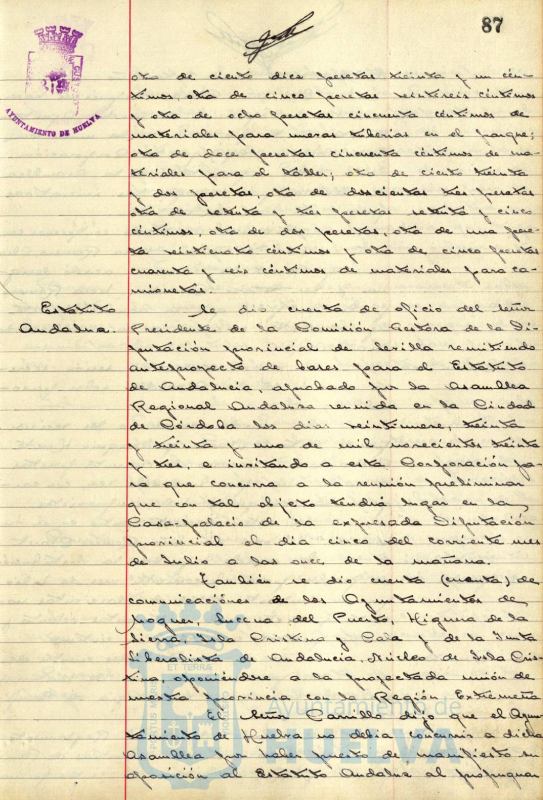 87
AYUNTAMIENTO DE HUELVA
otra de ciento diez pesetas treinta y un cén-
timos, otra de cinco pesetas veintiseis céntimos
y otra de ocho pesetas cincuenta céntimos de
materiales para nuevas tuberias en el parque;
otra de doce pesetas cincuenta céntimos de ma-
teriales para el taller; otra de ciento treinta
y dos pesetas, otra de doscientas tres pesetas
otra de setenta y tres pesetas setenta y cinco
céntimos, otra de dos pesetas, otra de una pese-
ta veinticuatro céntimos y otra de cinco pesetas
cuarenta y seis céntimos de materiales para ca-
mionetas.
Estatuto
Andaluz.
Se dio cuenta de oficio del señor
Presidente de la Comisión Gestora de la Di-
putación provincial de Sevilla remitiendo
anteproyecto de bases para el Estatuto
de Andalucia, aprobado por la Asamblea
Regional Andaluza reunida en la Ciudad
de Córdoba los dias veintinueve, treinta
y treinta y uno de mil novecientos treinta
y tres, e invitando a esta Corporación pa-
ra que concurra a la reunión preliminar
que con tal objeto tendrá lugar en la
Casa-palacio de la expresada Diputación
provincial el dia cinco del corriente mes
de Julio a las once de la mañana.
También se dio cuenta (cuenta) de
comunicaciónes de los Ayuntamientos de
Moguer, Lucena del Puerto, Higuera de la
Sierra, Isla Cristina y Cala y de la Junta
Liberalista de Andalucia, Núcleo de Isla Cris-
tina oponiéndose a la proyectada unión de
nuestra provincia con la Región Extremeña
El señor Carrillo dijo que el Ayun-
tamiento de Huelva no debia concurrir a dicha
Asamblea por haber puesto de manifiesto su
oposición al Estatuto Andaluz al propugnar
Ayuntamiento de
HUELVA